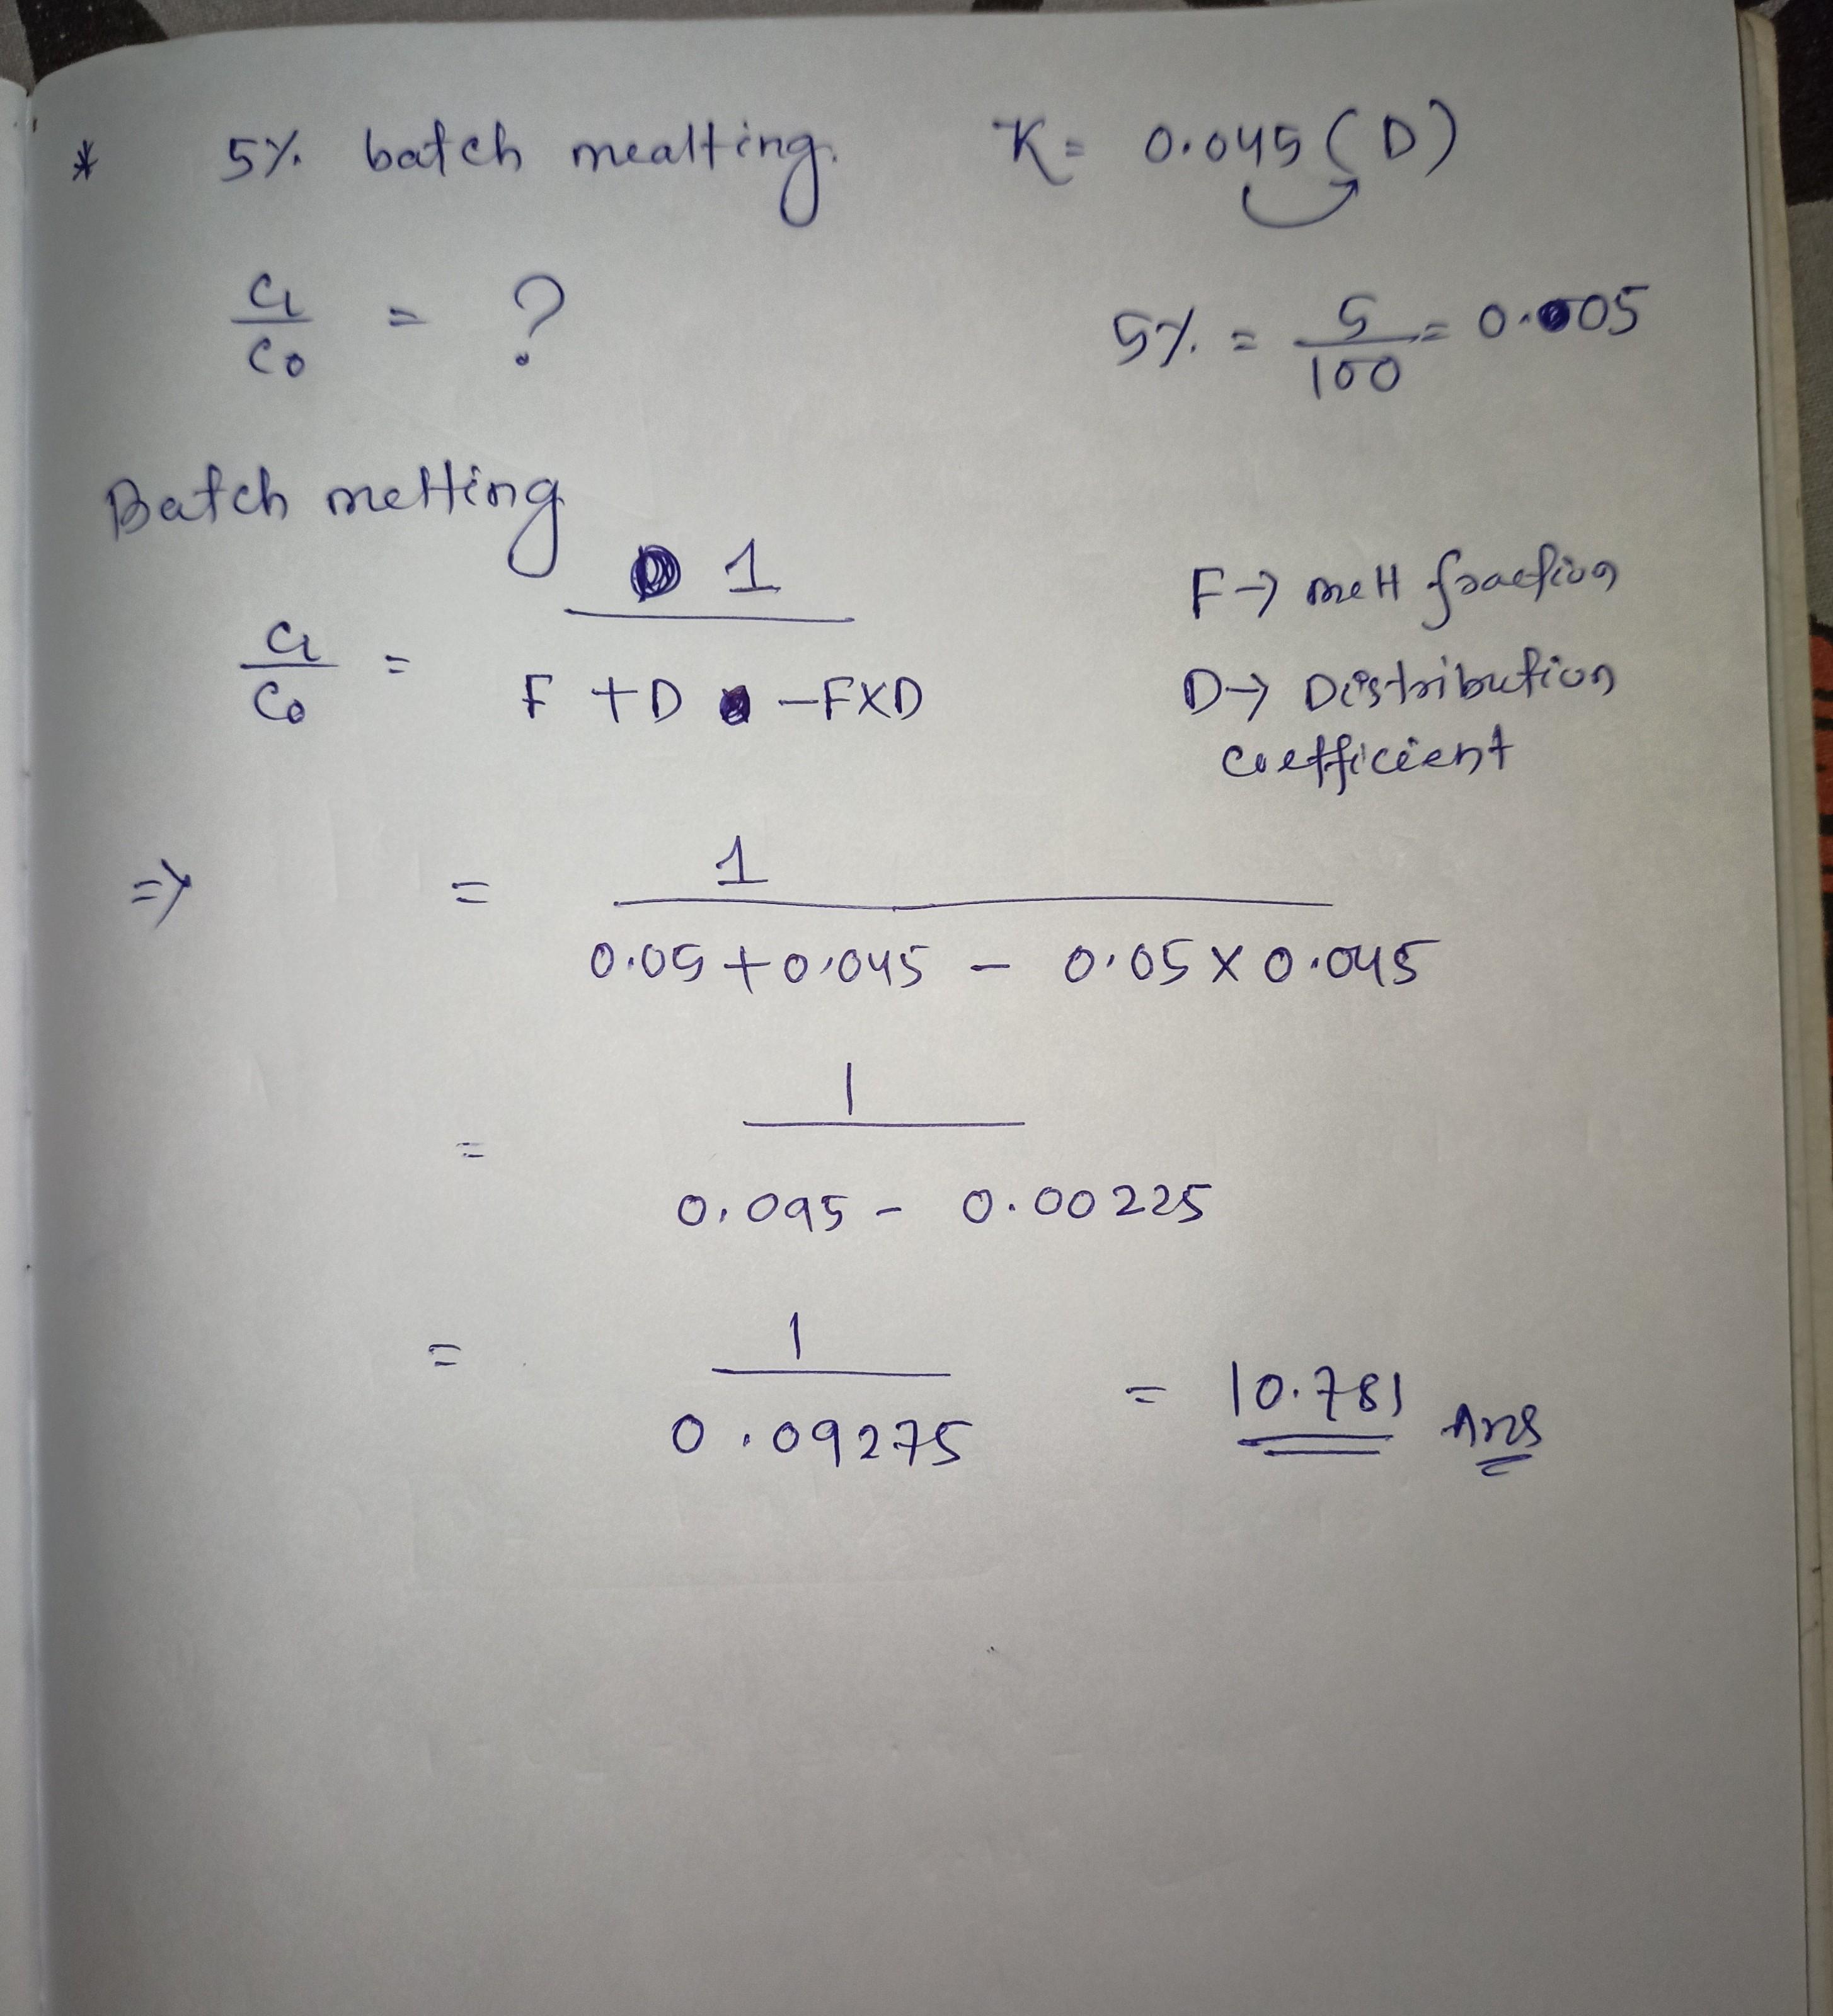 * 5% batch mealting. K = 0.045 (D)
Cl/Co = ?
5% = 5/100 = 0.05
Batch melting
Cl/Co = 1/(F + D - F×D)
F → melt fraction
D → Distribution
coefficient
⇒ = 1/(0.05 + 0.045 - 0.05 × 0.045)
= 1/(0.095 - 0.00225)
= 1/0.09275 = 10.781 Ans